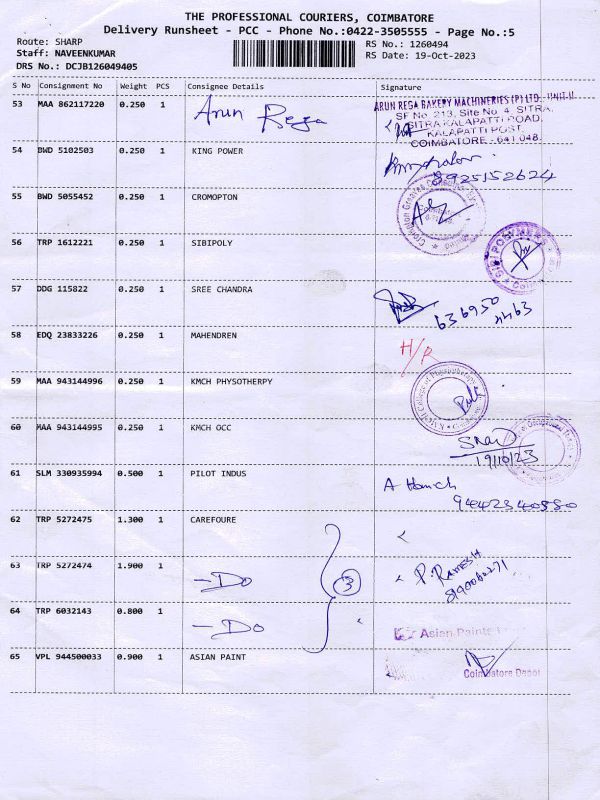 THE PROFESSIONAL COURIERS, COIMBATORE
Delivery Runsheet - PCC - Phone No.:0422-3505555 - Page No.:5
Route: SHARP
RS No.: 1260494
Staff: NAVEENKUMAR
RS Date: 19-Oct-2023
DRS No.: DCJB126049405
S No Consignment No Weight PCS Consignee Details Signature
53 MAA 862117220 0.250 1 Arun Rega
ARUN REGA BAKERY MACHINERIES (P) LTD. UNIT-II
SF No. 213, Site No. 4, SITRA,
SITRA KALAPATTI ROAD,
KALAPATTI POST,
COIMBATORE - 641 048.
54 BWD 5102503 0.250 1 KING POWER
8925152624
55 BWD 5055452 0.250 1 CROMOPTON
56 TRP 1612221 0.250 1 SIBIPOLY
57 DDG 115822 0.250 1 SREE CHANDRA
939950
4493
58 EDQ 23833226 0.250 1 MAHENDREN H/R
59 MAA 943144996 0.250 1 KMCH PHYSOTHERPY
60 MAA 943144995 0.250 1 KMCH OCC
19/10/23
61 SLM 330935994 0.500 1 PILOT INDUS
9442340880
62 TRP 5272475 1.300 1 CAREFOURE
63 TRP 5272474 1.900 1 -Do 3 P. RAMESH
64 TRP 6032143 0.800 1 -Do
Asian Paints
65 VPL 944500033 0.900 1 ASIAN PAINT
Coimbatore Depot